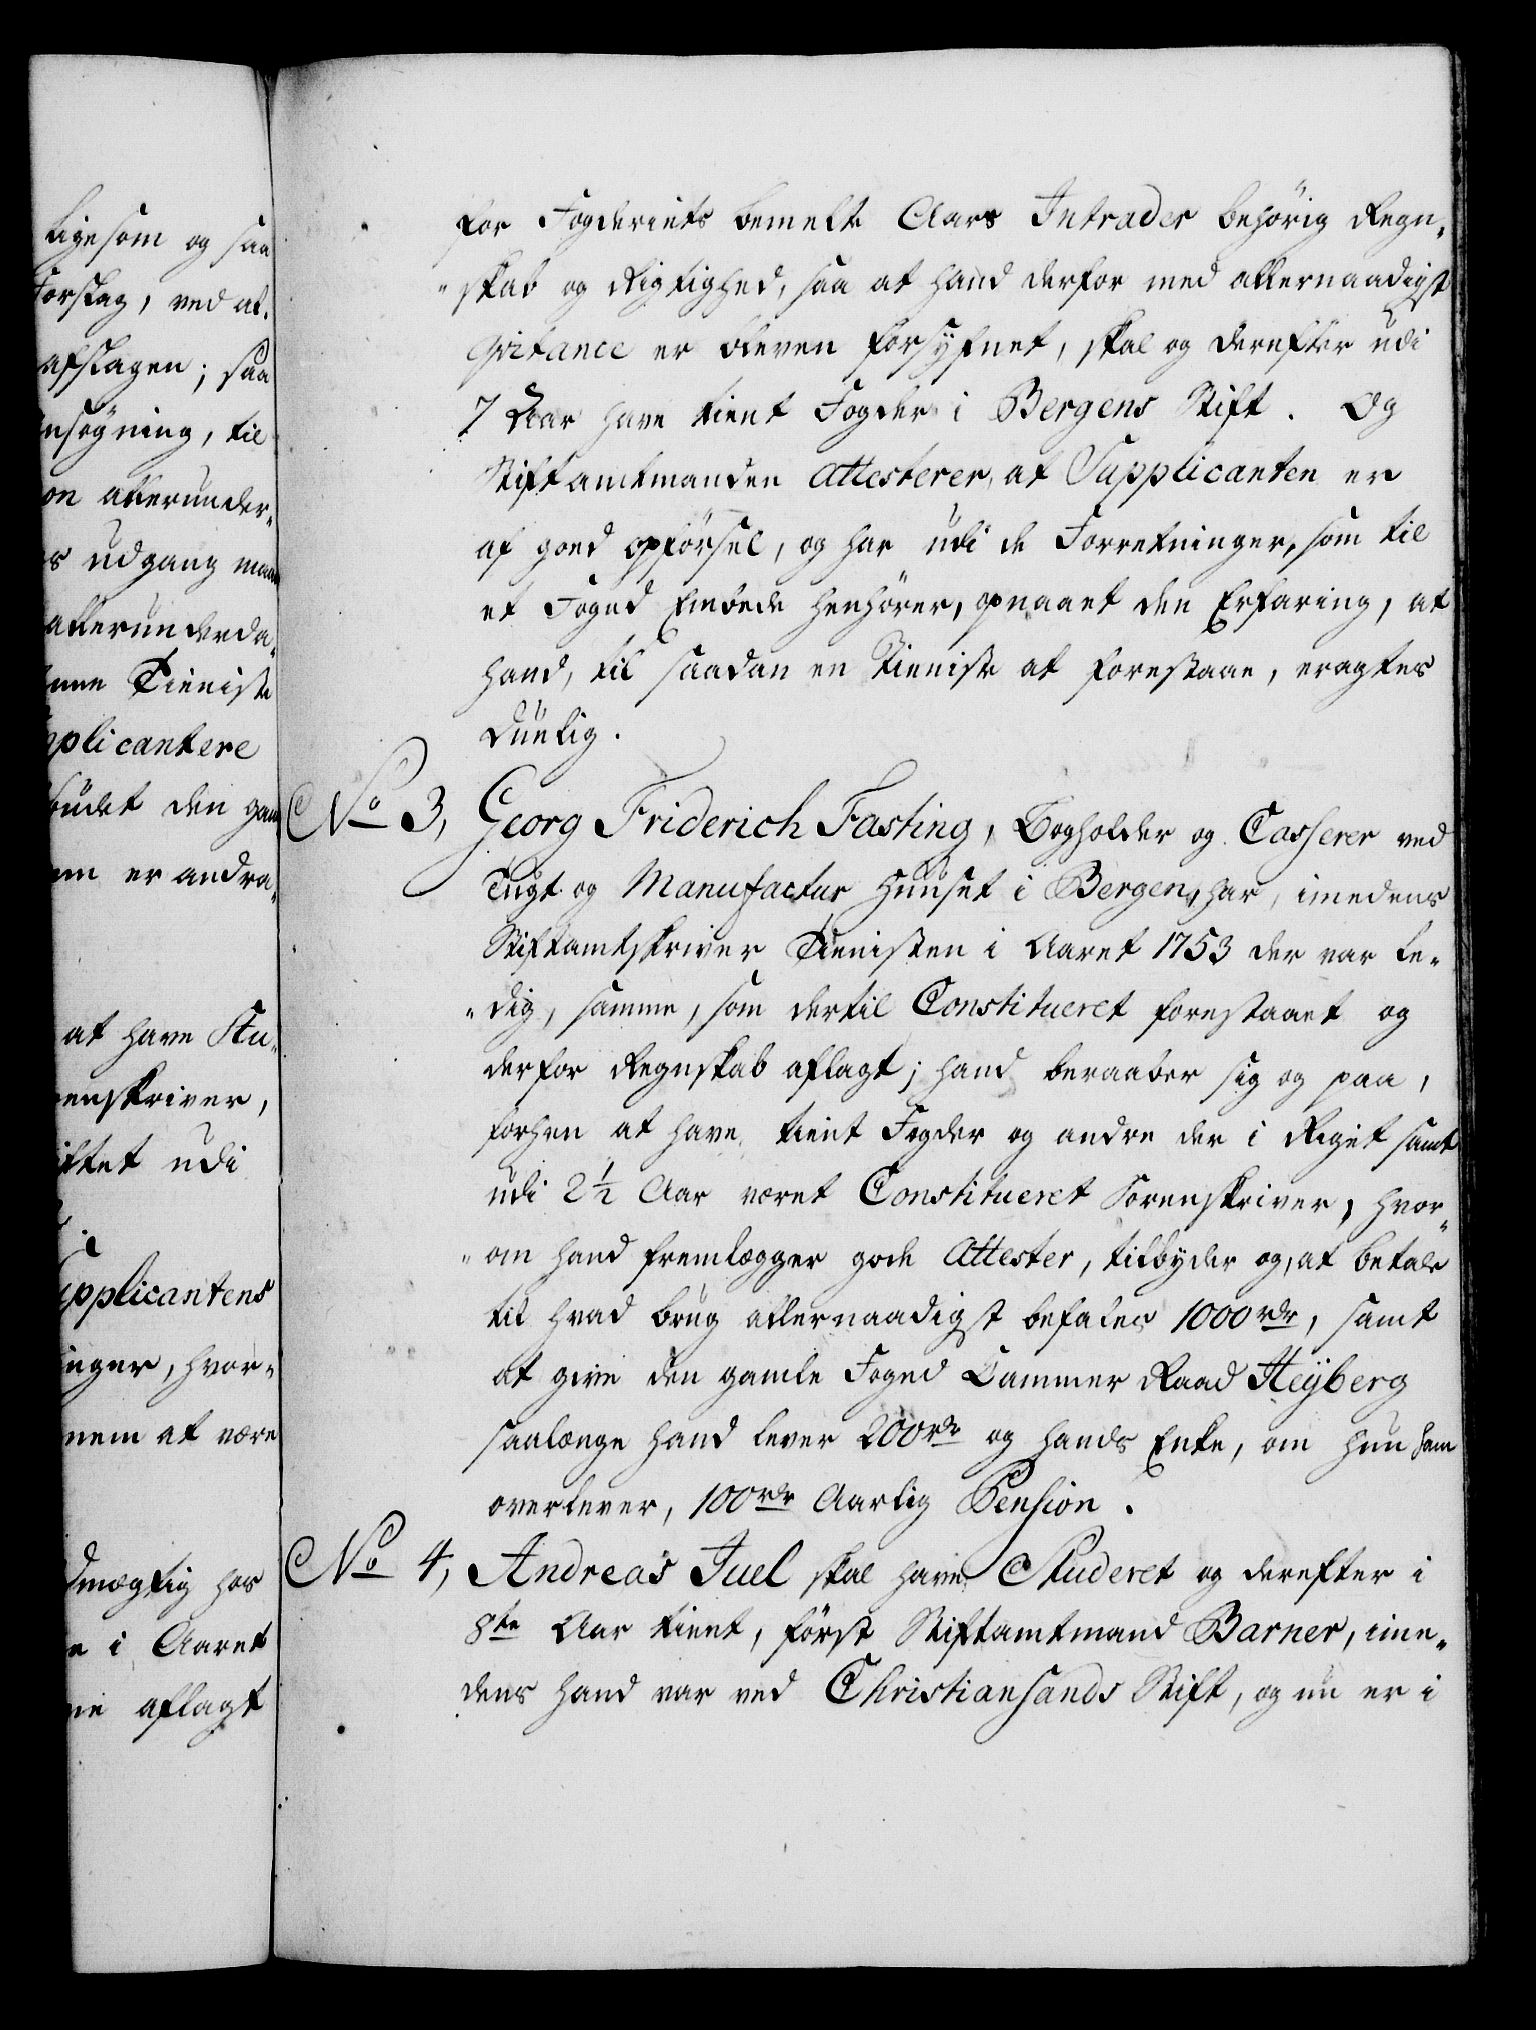 ligesom og saa
Forslag, ved at
afslagen; saa
nsøgning, til
on allerunder„
s udgang maa
allerunderda„
nne Tieniste
plicantere
budet den gam
nn er andra„
at have Stu„
renskriver,
iftet udi
upplicantens
inger, hvor„
nem at være
dmægtig hos
e i Aaret
ne aflagt
for Fogderiets bemelte Aars Intrader behörig Regn„
„skab og Rigtighed, saa at hand derfor med allernaadigst
Qvitance er bleven forsÿfnet, skal og derefter udi
7 Aar have tient Fogder i Bergens Stift. Og
Stiftamtmanden Attesterer, at Supplicanten er
af goed opförsel, og har udi de Forretninger, som til
et Foged Embede henhörer, opnaaet den Erfaring, at
hand, til saadan en Tieniste at forestaae, eragtes
duelig.
No 3, Georg Friderich Fasting, Bogholder og Casserer ved
Tugt og Manufactur Huuset i Bergen, har, imedens
Stiftamtskriver Tienisten i Aaret 1753 der var le„
„dig, samme, som dertil Constitueret forestaaet og
derfor Regnskab aflagt; hand beraaber sig og paa,
forhen at have tient Fogder og andre der i Riget samt
udi 2½ Aar været Constitueret Sorenskriver, hvor„
„om hand fremlægger gode Attester, tilbyder og, at betale
til hvad brug allernaadigst befales 1000 rdr, samt
at give den gamle Foged Cammer Raad Heÿberg
saalænge hand lever 200 rdr og hands Enke, om hun ham
overlever, 100 rdr Aarlig Pension.
No 4, Andreas Juel skal have Studeret og derefter i
8te Aar tient, först Stiftamtmand Barner, ime„
dens hand var ved Christiansands Stift, og nu er i